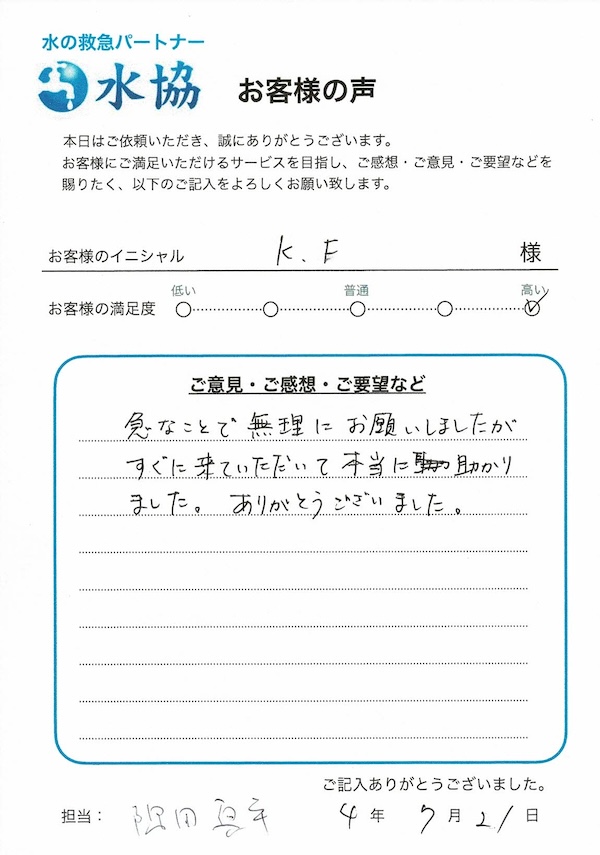 水の救急パートナー
水協 お客様の声
本日はご依頼いただき、誠にありがとうございます。
お客様にご満足いただけるサービスを目指し、ご感想・ご意見・ご要望などを
賜りたく、以下のご記入をよろしくお願い致します。
お客様のイニシャル K.F 様
低い 普通 高い
お客様の満足度
ご意見・ご感想・ご要望など
急なことで無理にお願いしましたが
すぐに来ていただいて本当に助かり
ました。ありがとうございました。
ご記入ありがとうございました。
担当： 隈田 4年 7月21日